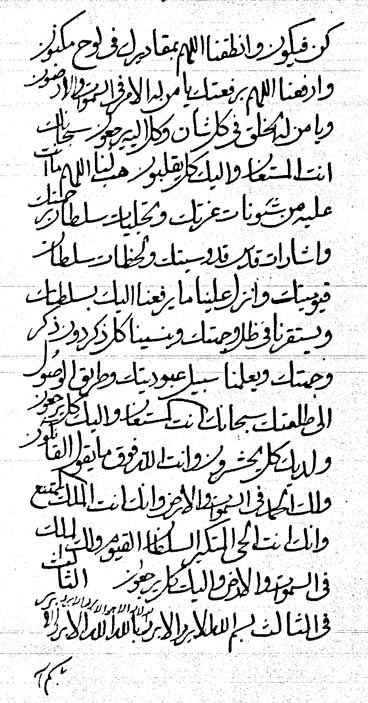 كن فيكون وانطقنا اللهم بمقاديرك في لوح مكنون
وارفعنا اللهم برفعتك يا من له الامر في السموات والارضون
ويا من له الخلق في كل شان وكل اليه يرجعون سبحانك
انت المستعان واليك كل يقلبون هب لنا اللهم ما انت
عليه من شئونات عزتك وتجليات سلطان رحمتك
واشارات قدس قدوسيتك ولحظات سلطان
قيوميتك وانزل علينا ما يرفعنا اليك بسلطنتك
ويستقرنا في ظل رحمتك وينسينا كل ذكر دون ذكر
وجهتك ويعلمنا سبيل عبوديتك وطريق الوصول
الى طلعتك سبحانك انت المستعان واليك كل يرجعون
ولديك كل يحشرون وانت الله فوق ما يقول القائلون
ولك الحمد في السموات والارض وانك انت الملك الممتنع
وانك انت الحي المتكبر السلطان القيوم ولك الملك
في السموات والارض واليك كل يرجعون الثالث
في الثالث بسم الله الابر الابر بالله الله الابر الابر